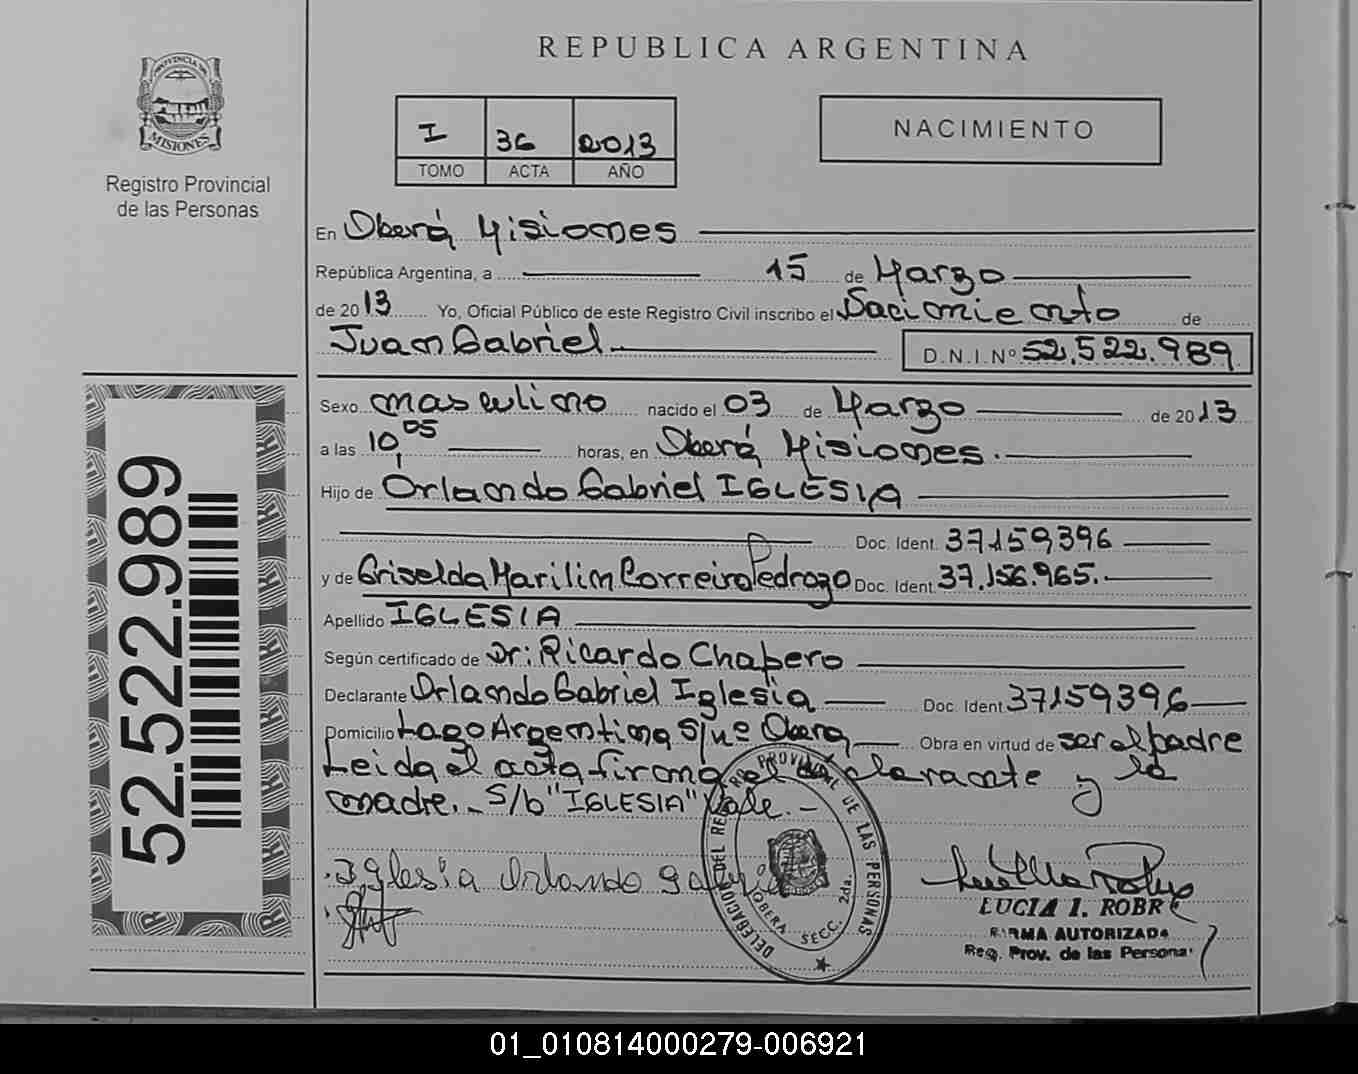 REPUBLICA ARGENTINA
PROVINCIA DE
MISIONES
Registro Provincial
de las Personas
I 36 2013
TOMO ACTA AÑO
NACIMIENTO
En Oberá Misiones
República Argentina, a 15 de Marzo
de 2013 Yo, Oficial Público de este Registro Civil inscribo el Nacimiento de
Juan Gabriel D.N.I. Nº 52.522.989
Sexo masculino nacido el 03 de Marzo de 2013
a las 10,05 horas, en Oberá Misiones.
Hijo de Orlando Gabriel IGLESIA
Doc. Ident. 37159396
y de Griselda Marilin Correiro Pedrozo Doc. Ident. 37.156.965.
Apellido IGLESIA
Según certificado de Dr: Ricardo Chapero
Declarante Orlando Gabriel Iglesia Doc. Ident. 37159396
Domicilio Lago Argentina S/nº Obera Obra en virtud de ser el padre
Leida el acta firma el declarante y la
madre. S/b "IGLESIA" Vale.-
52.522.989
Iglesia Orlando Gabriel
DELEGACION DEL REGISTRO PROVINCIAL DE LAS PERSONAS
OBERA SECC. 2da.
LUCIA I. ROBRE
FIRMA AUTORIZADA
Reg. Prov. de las Personas
01_010814000279-006921